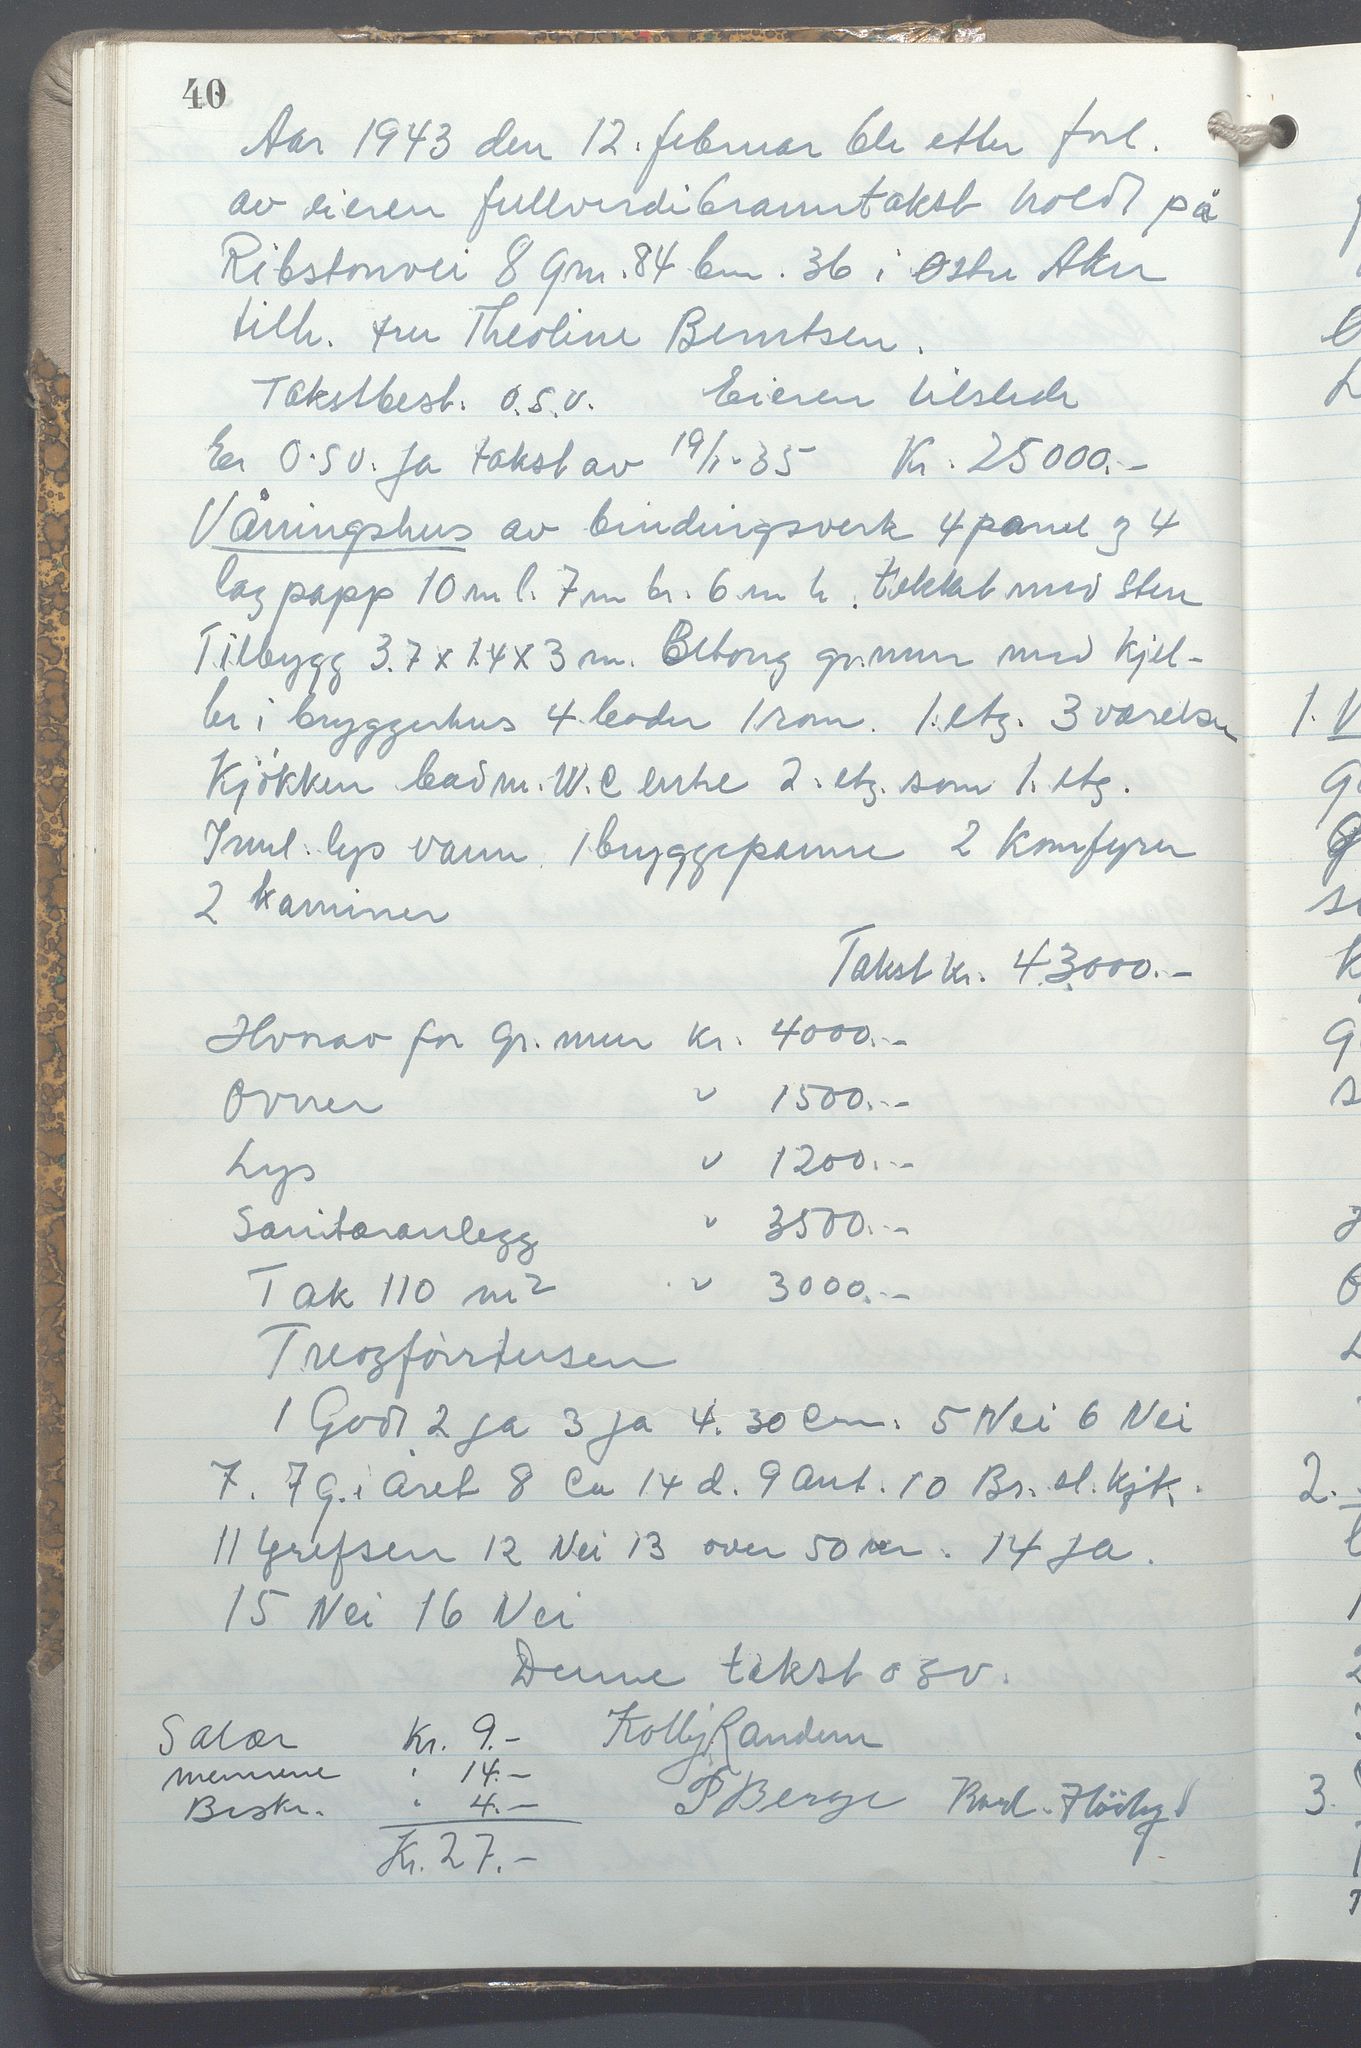 40
Aar 1943 den 12. februar ble etter forl.
av eieren fullverdibranntakst holdt på
Ribstonvei 8 Gnr. 84 bnr. 36 i Østre Aker
tilh. fru Theoline Berntsen.
Takstbest. o.s.v. Eieren tilstede
Er o.s.v. ja takst av 19/1-35 Kr. 25000.-
Våningshus av bindingsverk 4 panel og 4
lag papp 10 m l. 7 m br. 6 m h. tekket med sten
Tilbygg 3.7 x 1.4 x 3 m. Betong gr.mur med kjel-
ler i bryggerhus 4 boder 1 rom. 1. etg. 3 værelser
Kjøkken bad m. W.C entre 2. etg. som 1. etg.
Innl. lys vann 1 bryggepanne 2 Komfyrer
2 kaminer
Takst kr. 43000.-
Hvorav for gr. mur kr. 4000.-
Ovner " 1500.-
Lys " 1200.-
Sanitæranlegg " 3500.-
Tak 110 m2 " 3000.-
Treogførrtusen
1 Godt 2 ja 3 ja 4. 30 Cm. 5 Nei 6 Nei
7. 7 G. i Året 8 Ca 14 d. 9 Aut. 10 Br. sl. kjk.
11 Grefsen 12 Nei 13 over 50 m. 14 ja.
15 Nei 16 Nei
Denne takst osv.
Salær Kr. 9.- Kolbj. Randem
mennene " 14.-
P Berge Karl. Høiby
Beskr. " 4.-
Kr. 27.-